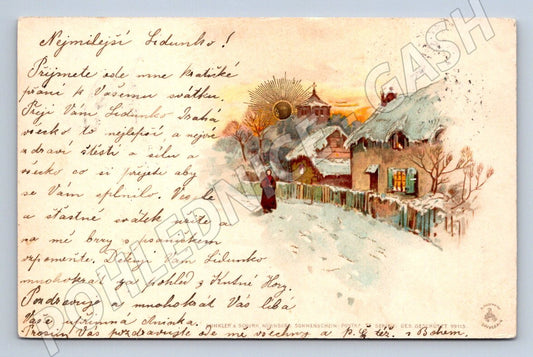 Nejmilejší Lidunko!
Přijmete ode mne krátké
přání k Vašemu svátku
Přeji Vám Lidunko
všecko to nejlepší a nej
zdraví štěstí a sílu a
všecko co si přejete aby
se Vám splnilo. Vesele
a šťastně svátek
na mé brzy s psaníčkem
vzpomeňte. Děkuji Vám Lidunko
mnohokrát za pohled z Kutné Hory
Pozdravuje a mnohokrát Vás líbá
Vaše upřímná Aninka.
Prosím Vás pozdravujte ode mě všechny a p. též. s Bohem.
POHLEDNICE GASH
WINKLER & SCHORR, NÜRNBERG. SONNENSCHEIN-POSTKARTE